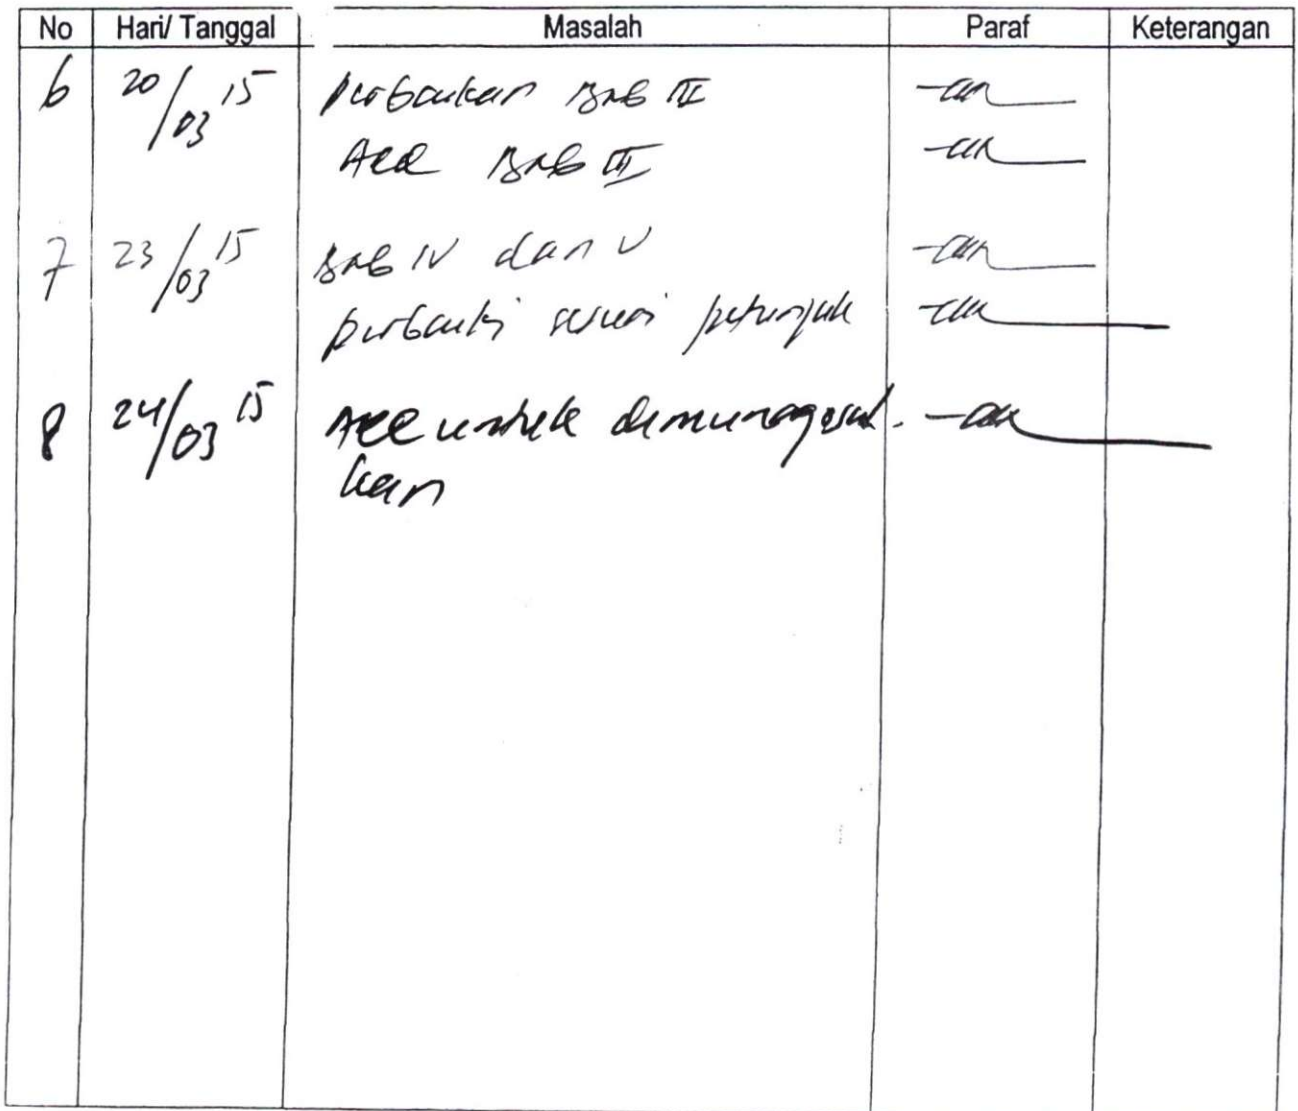 No Hari/ Tanggal Masalah Paraf Keterangan
6 20/03 15 perbaikan BAB III
Acc BAB III
7 23/03 15 BAB IV dan V
perbaiki sesuai petunjuk
8 24/03 15 Acc untuk dimunaqasah-
kan